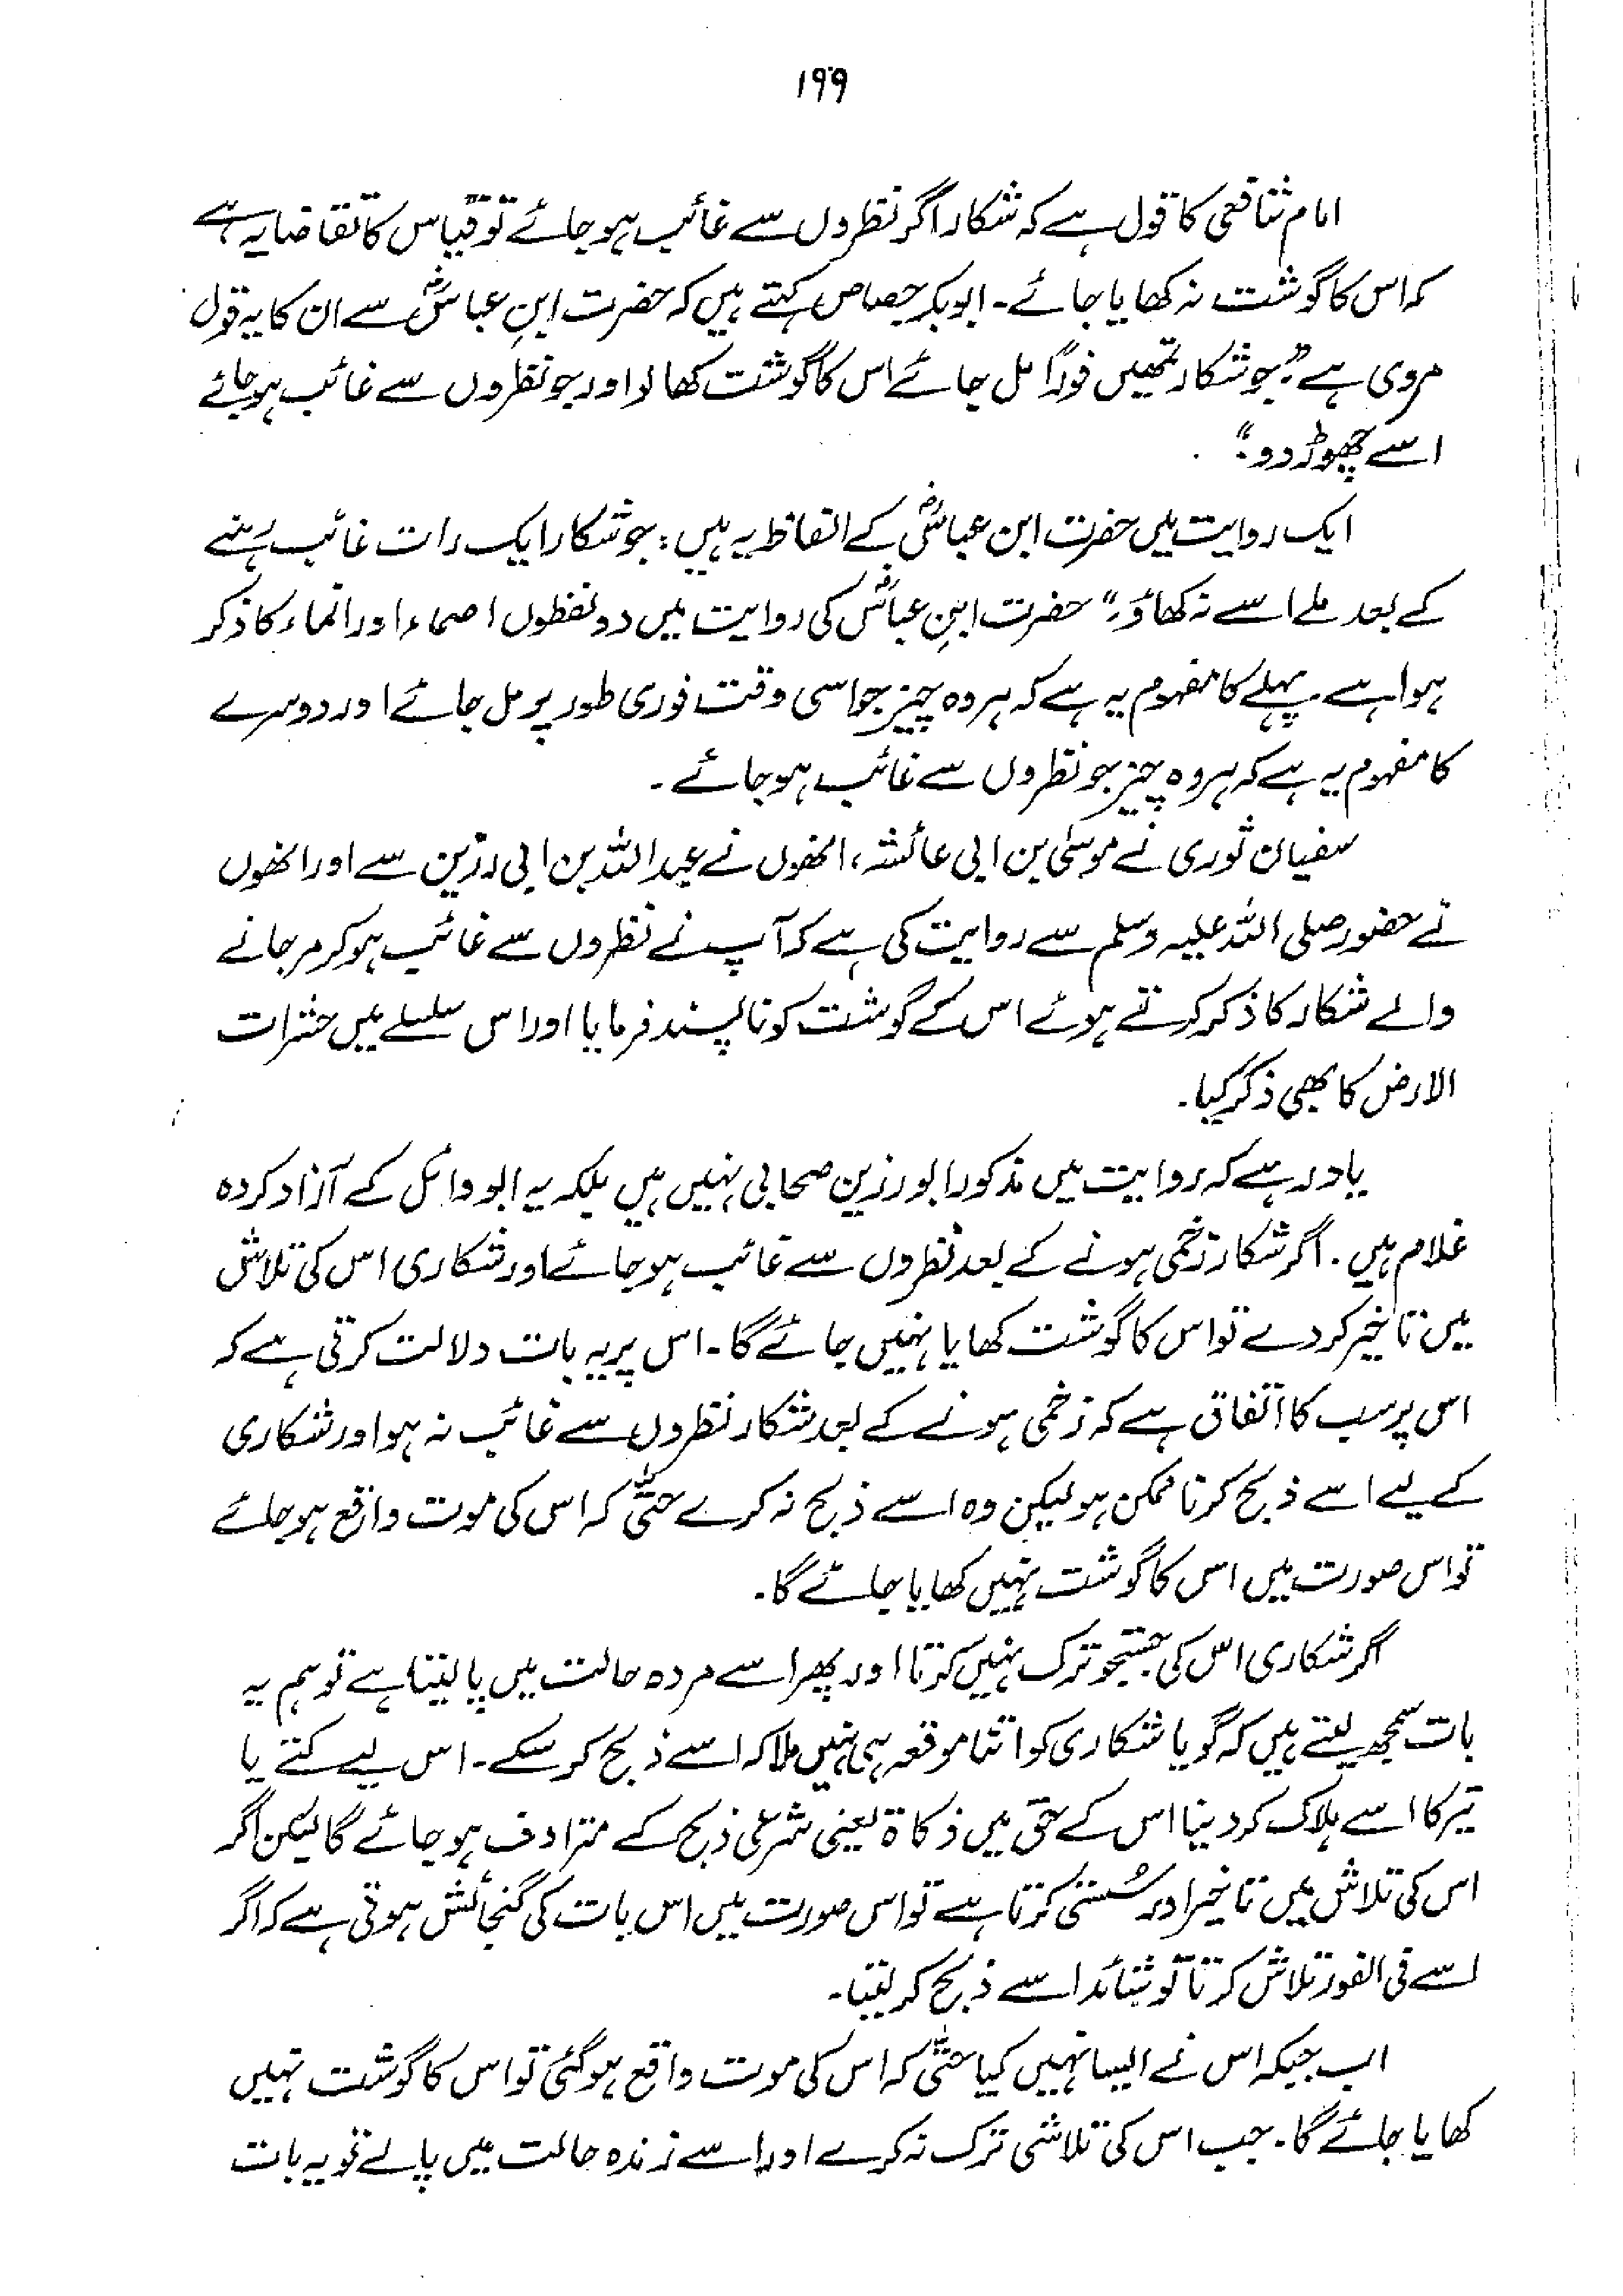 ۱۹۹
امام شافعی کا قول ہے کہ شکار اگر نظروں سے غائب ہو جائے تو قیاس کا تقاضا یہ ہے
کہ اس کا گوشت نہ کھایا جائے۔ ابوبکر جصاص کہتے ہیں کہ حضرت ابنِ عباسؓ سے ان کا یہ قول
مروی ہے "جو شکار تمھیں فوراً مل جائے اس کا گوشت کھا لو اور جو نظروں سے غائب ہو جائے
اسے چھوڑ دو۔"
ایک روایت میں حضرت ابن عباسؓ کے الفاظ یہ ہیں: جو شکار ایک رات غائب رہنے
کے بعد ملے اسے نہ کھاؤ۔" حضرت ابنِ عباسؓ کی روایت میں دو لفظوں اصماء اور انماء کا ذکر
ہوا ہے۔ پہلے کا مفہوم یہ ہے کہ ہر وہ چیز جو اسی وقت فوری طور پر مل جائے اور دوسرے
کا مفہوم یہ ہے کہ ہر وہ چیز جو نظروں سے غائب ہو جائے۔
سفیان ثوری نے موسیٰ بن ابی عائشہ، انھوں نے عبداللہ بن ابی رزین سے اور انھوں
نے حضور صلی اللہ علیہ وسلم سے روایت کی ہے کہ آپ نے نظروں سے غائب ہو کر مر جانے
والے شکار کا ذکر کرتے ہوئے اس کے گوشت کو ناپسند فرمایا اور اس سلسلے میں حشرات
الارض کا بھی ذکر کیا۔
یاد رہے کہ روایت میں مذکور ابورزین صحابی نہیں ہیں بلکہ یہ ابووائل کے آزاد کردہ
غلام ہیں۔ اگر شکار زخمی ہونے کے بعد نظروں سے غائب ہو جائے اور شکاری اس کی تلاش
میں تاخیر کر دے تو اس کا گوشت کھایا نہیں جائے گا۔ اس پر یہ بات دلالت کرتی ہے کہ
اس پر سب کا اتفاق ہے کہ زخمی ہونے کے بعد شکار نظروں سے غائب نہ ہو اور شکاری
کے لیے اسے ذبح کرنا ممکن ہو لیکن وہ اسے ذبح نہ کرے حتیٰ کہ اس کی موت واقع ہو جائے
تو اس صورت میں اس کا گوشت نہیں کھایا جائے گا۔
اگر شکاری اس کی جستجو ترک نہیں کرتا اور پھر اسے مردہ حالت میں پا لیتا ہے تو ہم یہ
بات سمجھ لیتے ہیں کہ گویا شکاری کو اتنا موقعہ ہی نہیں ملا کہ اسے ذبح کر سکے۔ اس لیے کتے یا
تیر کا اسے ہلاک کر دینا اس کے حق میں ذکاۃ یعنی شرعی ذبح کے مترادف ہو جائے گا لیکن اگر
اس کی تلاش میں تاخیر اور سُستی کرتا ہے تو اس صورت میں اس بات کی گنجائش ہوتی ہے کہ اگر
اسے فی الفور تلاش کرتا تو شائد اسے ذبح کر لیتا۔
اب جبکہ اس نے ایسا نہیں کیا حتیٰ کہ اس کی موت واقع ہو گئی تو اس کا گوشت نہیں
کھایا جائے گا۔ جب اس کی تلاشی ترک نہ کرے اور اسے زندہ حالت میں پا لے تو یہ بات